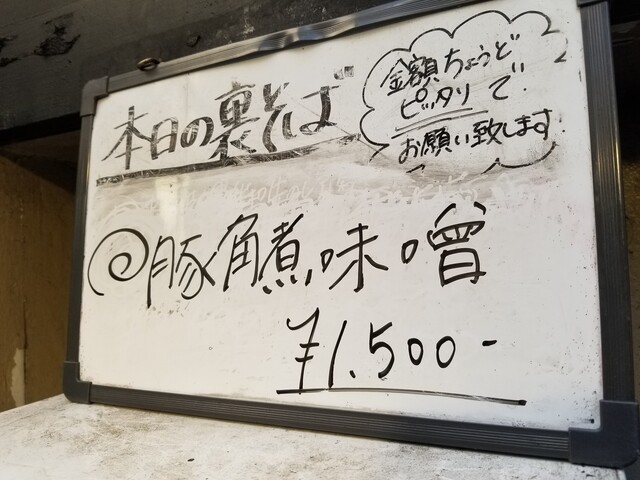 本日の裏そば
金額ちょうど
ピッタリで
お願い致します
豚角煮味噌
¥1,500-